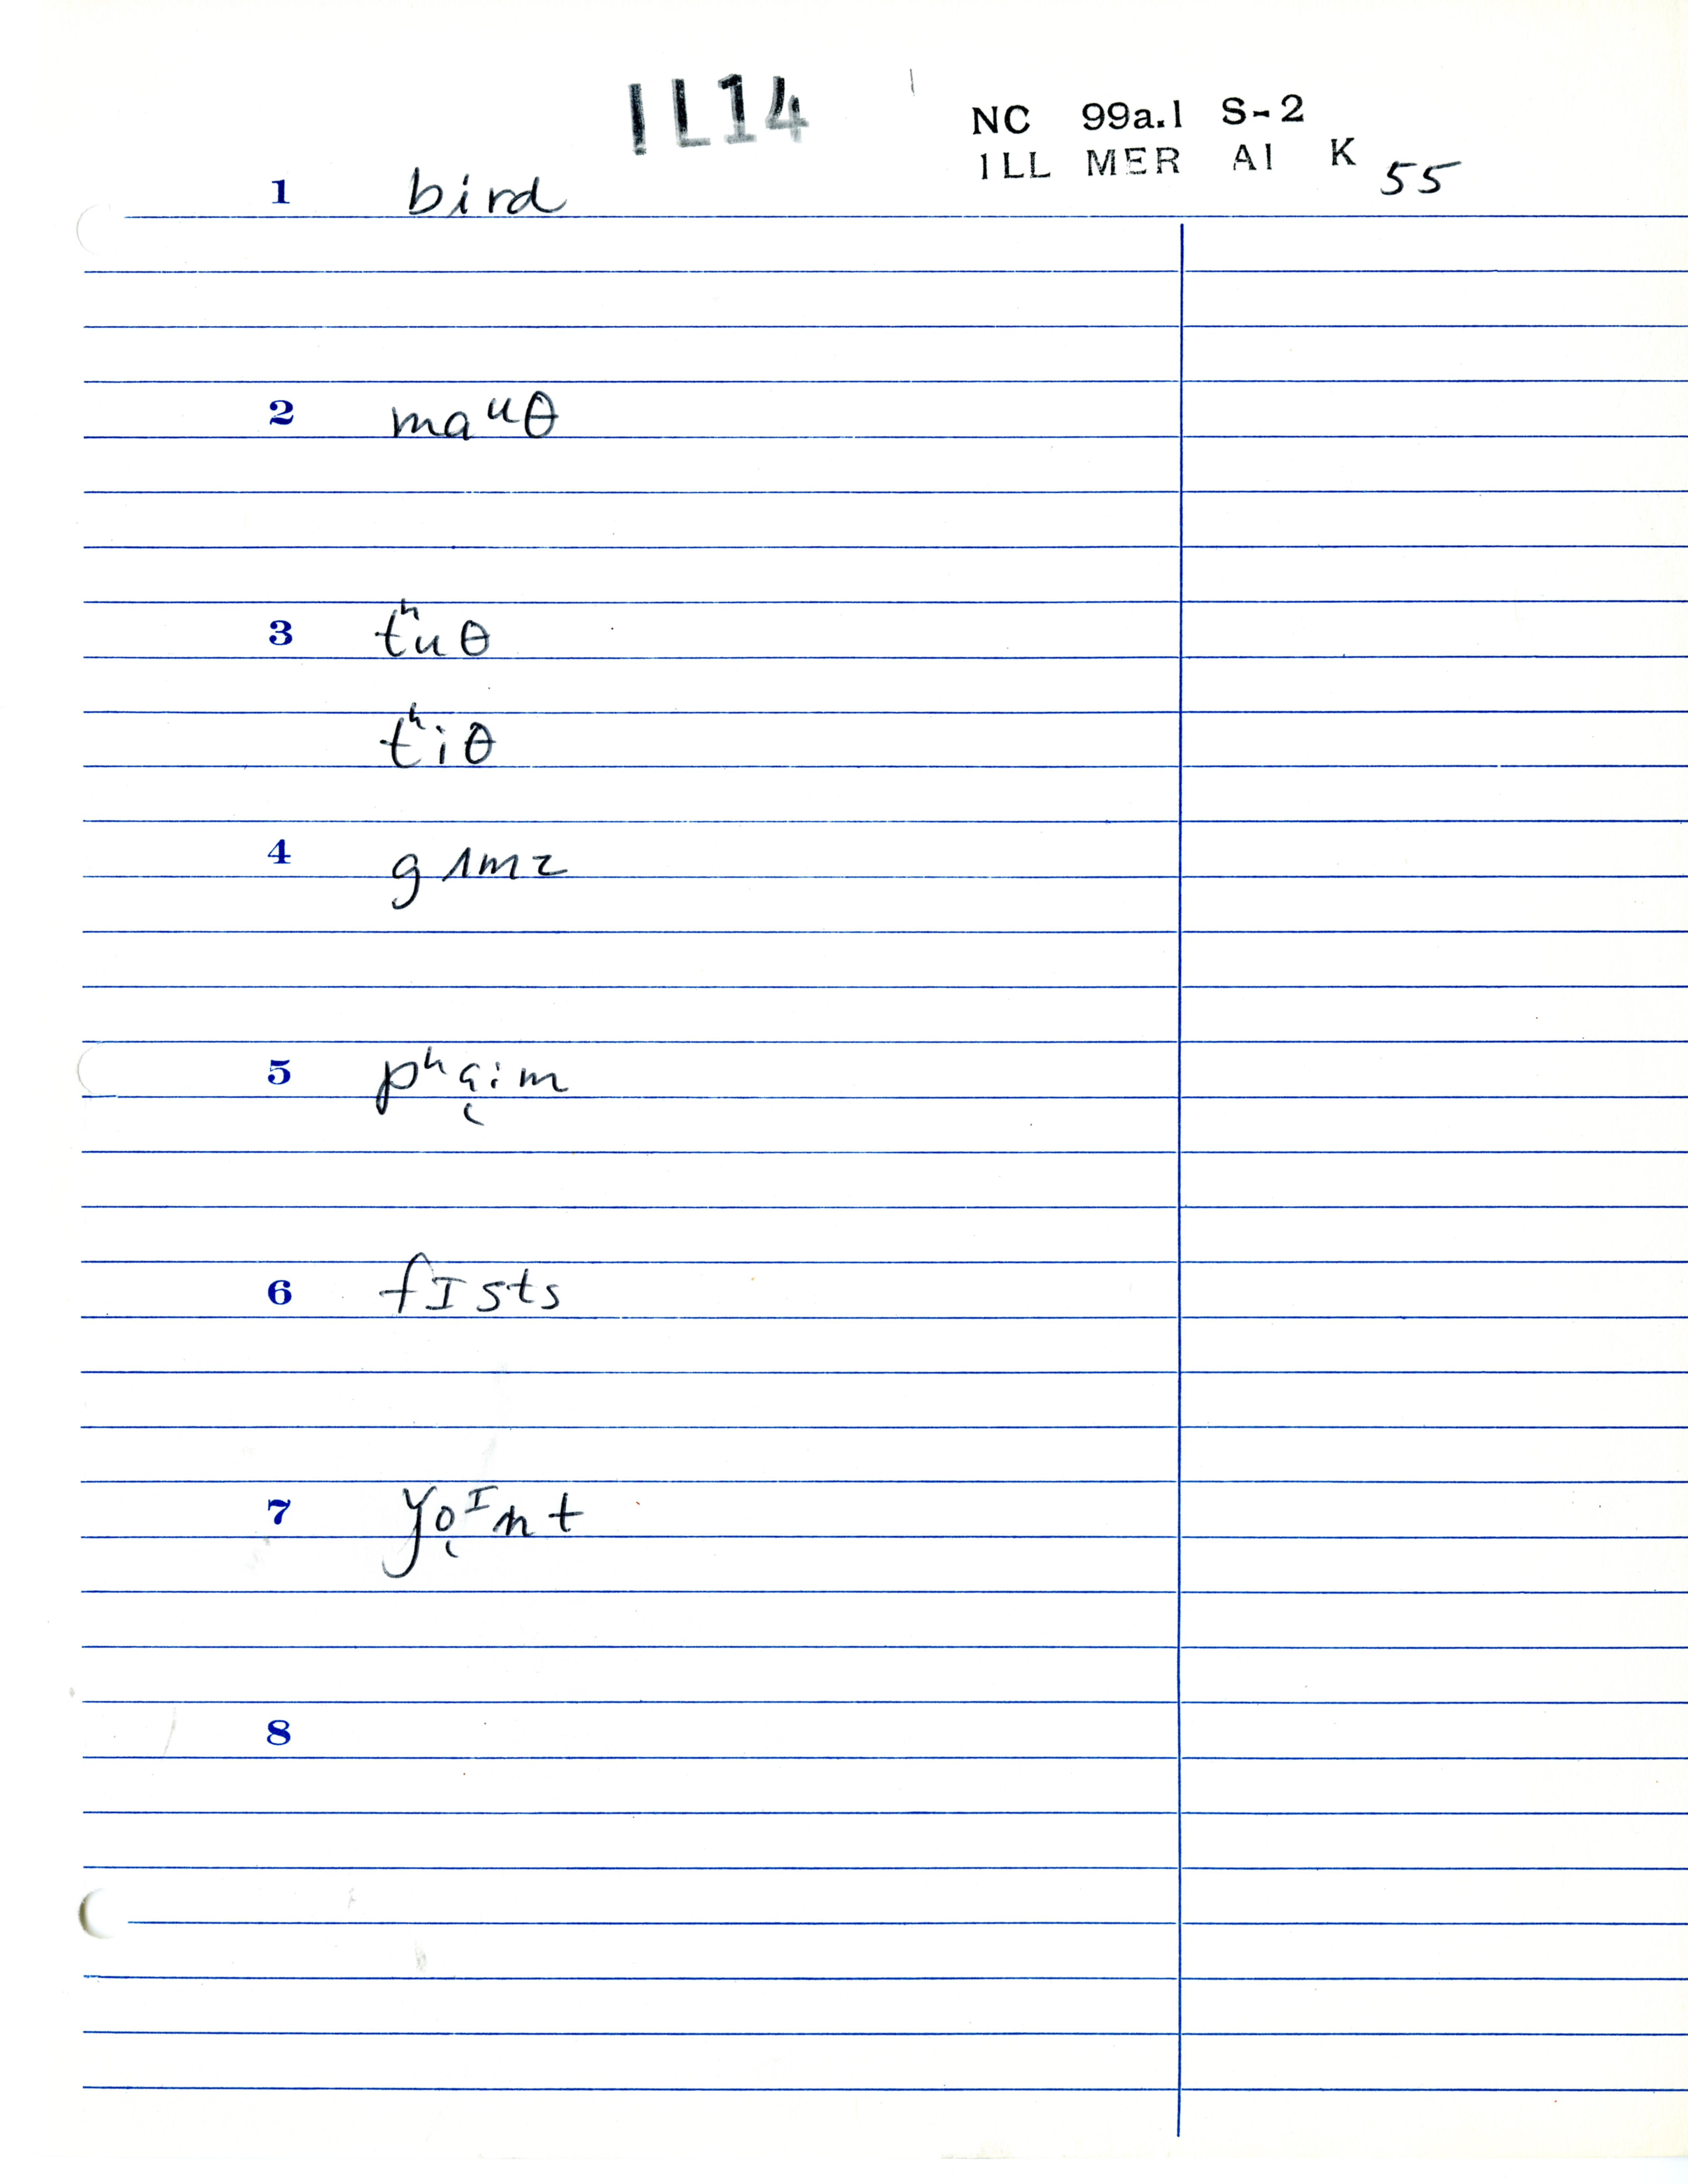 IL14
NC 99a.1 S-2
ILL MER A1 K 55
1 bird
2 maᵘθ
3 tʰuθ
tʰiθ
4 gʌmz
5 pʰa̜:m
6 fɪsts
7 yo̜ᴵnt
8